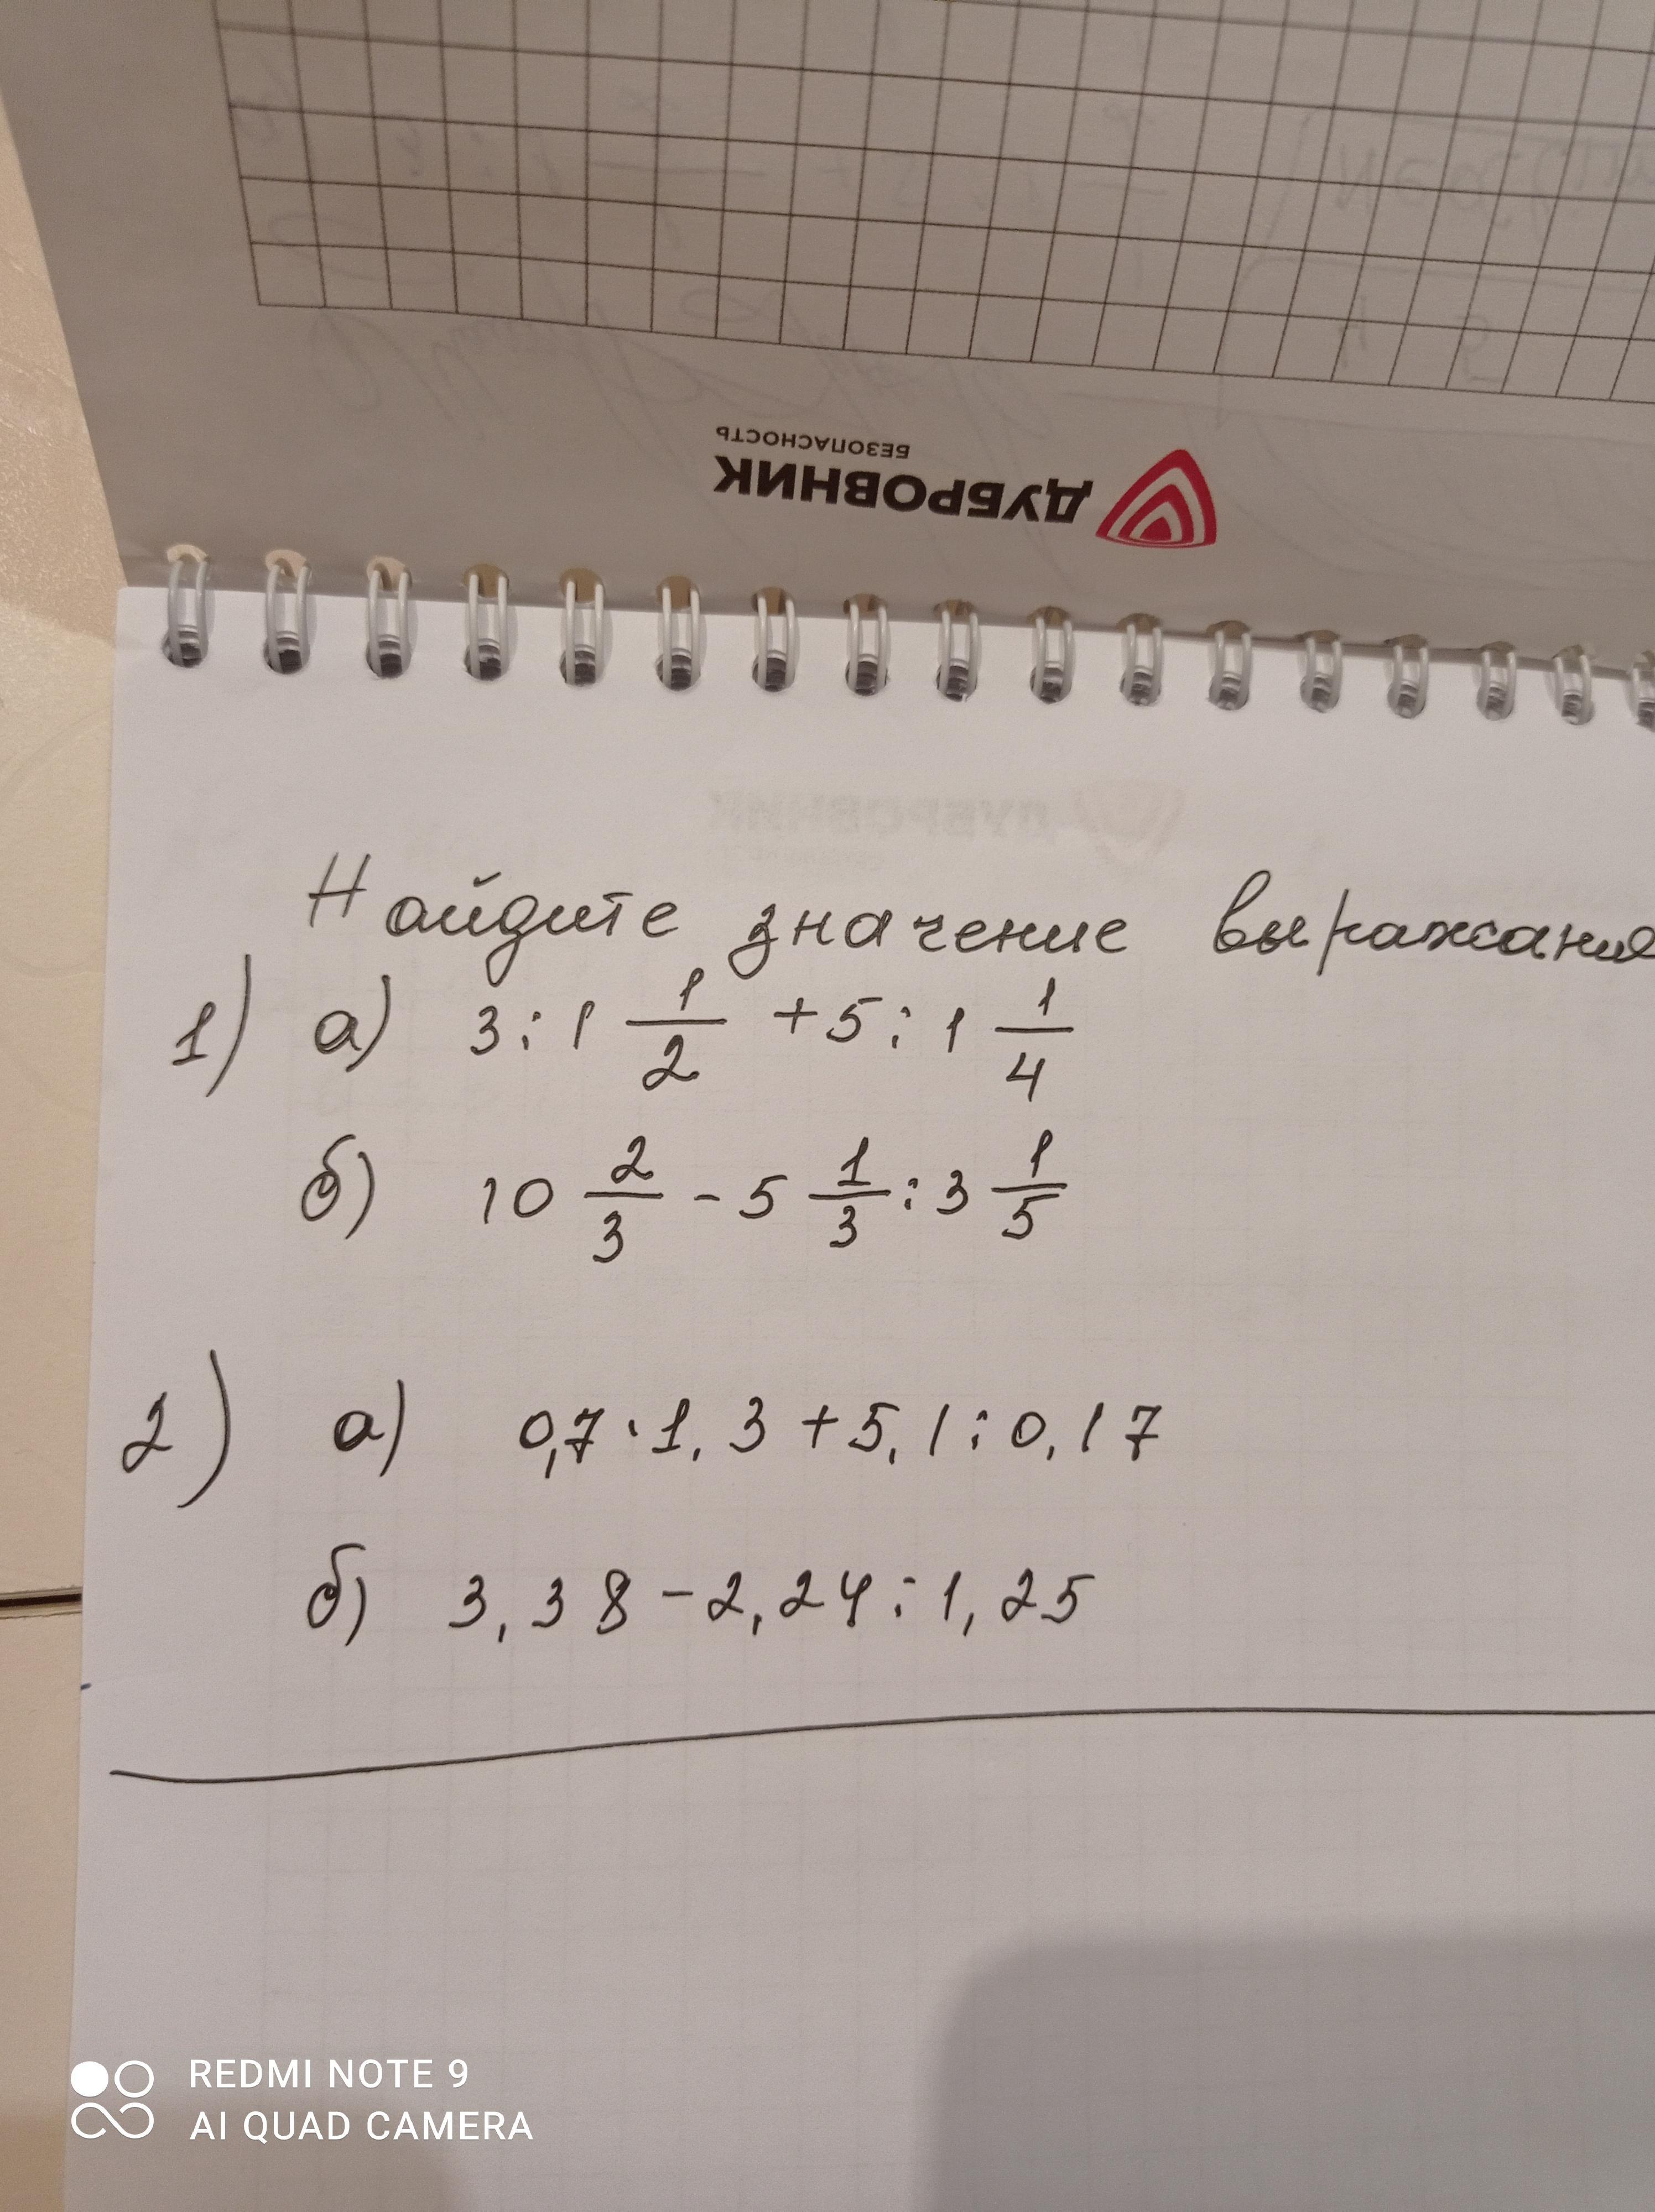 ДУБРОВНИК
БЕЗОПАСНОСТЬ
Найдите значение выражание
1) а) 3 : 1 1/2 + 5 : 1 1/4
б) 10 2/3 - 5 1/3 : 3 1/5
2) а) 0,7 · 1,3 + 5,1 : 0,17
б) 3,38 - 2,24 : 1,25
REDMI NOTE 9
AI QUAD CAMERA